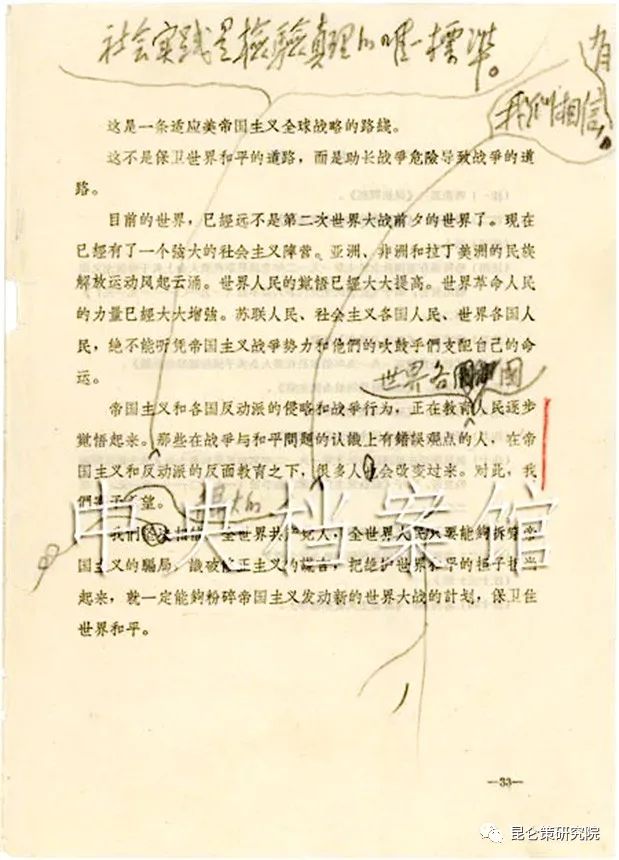 社会实践是檢驗真理的唯一标准。
有
我们相信，
这是一条适应美帝国主义全球战略的路綫。
这不是保卫世界和平的道路，而是助长战爭危险导致战爭的道
路。
目前的世界，已經远不是第二次世界大战前夕的世界了。现在
已經有了一个強大的社会主义陣营。亚洲、非洲和拉丁美洲的民族
解放运动风起云涌。世界人民的覚悟已經大大提高。世界革命人民
的力量已經大大增強。苏联人民、社会主义各国人民、世界各国人
民，绝不能听凭帝国主义战爭势力和他們的吹鼓手們支配自己的命
运。
世界各国
帝国主义和各国反动派的侵略和战爭行为，正在教育人民逐步
覚悟起来。那些在战爭与和平問題的认識上有錯誤观点的人，在帝
国主义和反动派的反面教育之下，很多人会改变过来。对此，我
們寄予 望。
极大的
我們 全世界共产党人，全世界人民只要能夠拆穿帝
国主义的騙局，識破修正主义的謊言，把維护世界和平的担子担当
起来，就一定能夠粉碎帝国主义发动新的世界大战的計划，保卫住
世界和平。
中央档案馆
—33—
昆仑策研究院